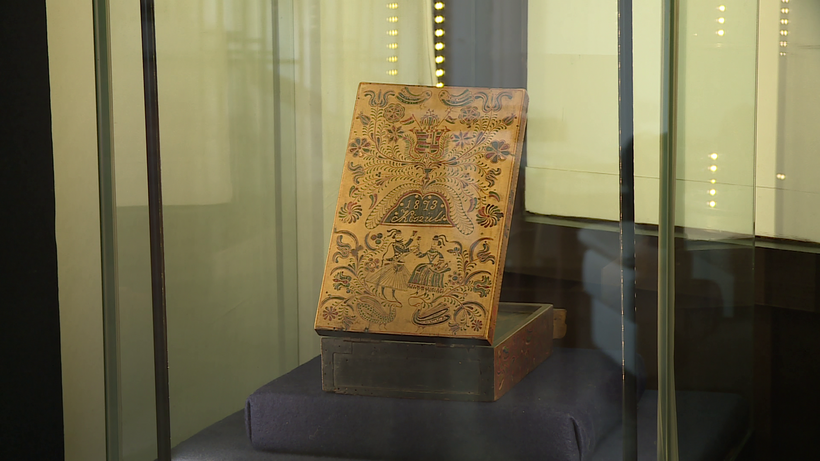 1893
Készült